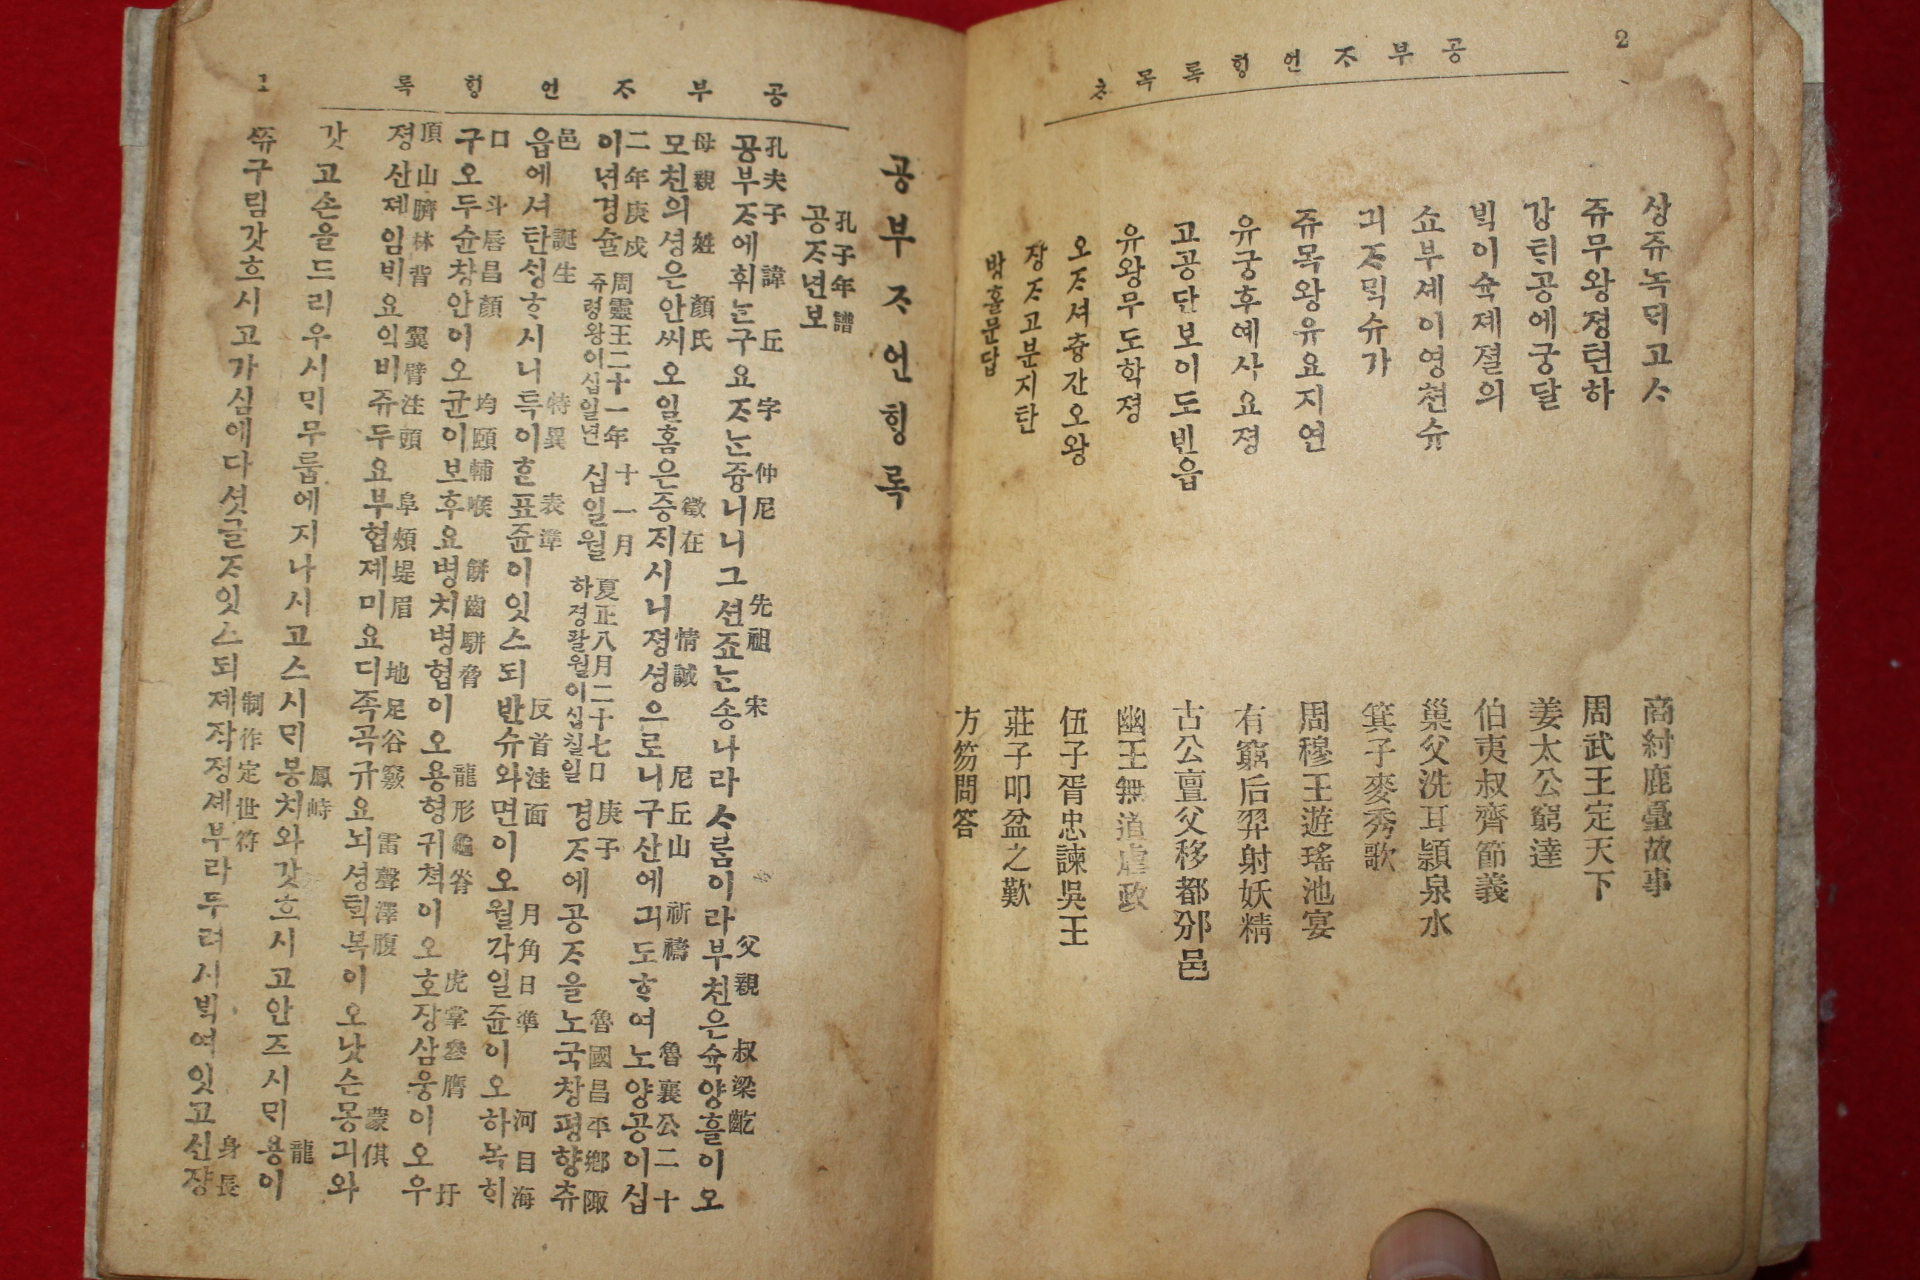 공부ᄌᆞ언ᄒᆡᆼ록목ᄎᆞ 2
샹쥬녹ᄃᆡ고ᄉᆞ 商紂鹿臺故事
쥬무왕졍텬하 周武王定天下
강ᄐᆡ공에궁달 姜太公窮達
ᄇᆡᆨ이슉졔졀의 伯夷叔齊節義
쇼부셰이영쳔슈 巢父洗耳潁泉水
긔ᄌᆞᄆᆡᆨ슈가 箕子麥秀歌
쥬목왕유요지연 周穆王遊瑤池宴
유궁후예사요졍 有窮后羿射妖精
고공단보이도빈읍 古公亶父移都邠邑
유왕무도학졍 幽王無道虐政
오ᄌᆞ셔츙간오왕 伍子胥忠諫吳王
쟝ᄌᆞ고분지탄 莊子叩盆之歎
방홀문답 方笏問答
공부ᄌᆞ언ᄒᆡᆼ록 1
공부ᄌᆞ언ᄒᆡᆼ록
孔子年譜
공ᄌᆞ년보
孔夫子 諱 丘 字 仲尼 先祖 宋 父親 叔梁紇
공부ᄌᆞ에휘ᄂᆞᆫ구요ᄌᆞᄂᆞᆫ즁니니그션죠ᄂᆞᆫ송나라ᄉᆞᄅᆞᆷ이라부친은슉양흘이오
母親 姓 顔氏 徵在 情誠 尼丘山 祈禱 魯襄公二十
모친의셩은안씨오일홈은증ᄌᆡ시니졍셩으로니구산에긔도ᄒᆞ여노양공이십
二年庚戌 周靈王二十一年 十一月 夏正八月二十七日 庚子 魯國昌平鄕陬
이년경슐 쥬령왕이십일년 십일월 하졍팔월이십칠일 경ᄌᆞ에공ᄌᆞ을노국창평향츄
邑 誕生 特異 表準 反首洼面 月角日準 河目海
읍에셔탄ᄉᆡᆼᄒᆞ시니특이ᄒᆞᆫ표쥰이잇스되반슈와면이오월각일쥰이오하목ᄒᆡ
口 斗唇昌顔 均頤輔喉 餠齒騈脅 龍形龜脊 虎掌叄膺 圩
구오두슌창안이오균이보후요병치병협이오용형귀쳑이오호장삼응이오우
頂山臍林背 翼臂注頭 阜頰堤眉 地足谷竅 雷聲澤腹 蒙倛
졍산졔임ᄇᆡ요익비쥬두요부협졔미요디족곡규요뇌셩ᄐᆡᆨ복이오낫슨몽긔와
鳳峙 龍
갓고손을드리우시ᄆᆡ무릅에지나시고스시ᄆᆡ봉치와갓흐시고안즈시ᄆᆡ용이
制作定世符 身長
쮸구림갓흐시고가심에다섯글ᄌᆞ잇스되졔작졍셰부라두려시ᄇᆡᆨ여잇고신쟝